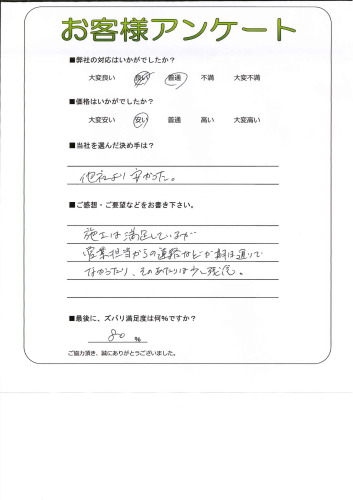 お客様アンケート
■弊社の対応はいかがでしたか?
大変良い 良い 普通 不満 大変不満
■価格はいかがでしたか?
大変安い 安い 普通 高い 大変高い
■当社を選んだ決め手は?
他社より安かった。
■ご感想・ご要望などをお書き下さい。
施工は満足しているが
営業担当からの連絡などが期日通りで
なかったり、そのあたりは少し残念。
■最後に、ズバリ満足度は何%ですか?
80 %
ご協力頂き、誠にありがとうございました。